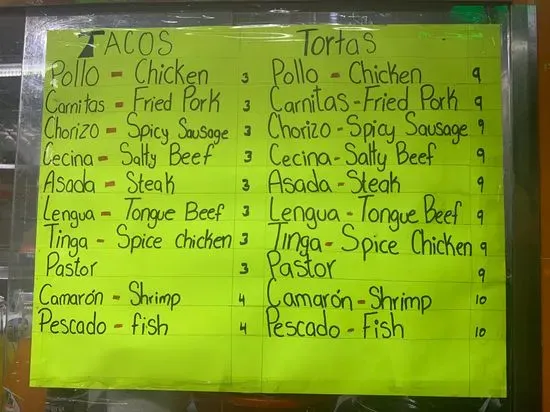 TACOS
Pollo - Chicken 3
Carnitas - Fried Pork 3
Chorizo - Spicy Sausage 3
Cecina - Salty Beef 3
Asada - Steak 3
Lengua - Tongue Beef 3
Tinga - Spice chicken 3
Pastor 3
Camarón - Shrimp 4
Pescado - fish 4
Tortas
Pollo - Chicken 9
Carnitas - Fried Pork 9
Chorizo - Spicy Sausage 9
Cecina - Salty Beef 9
Asada - Steak 9
Lengua - Tongue Beef 9
Tinga - Spice Chicken 9
Pastor 9
Camarón - Shrimp 10
Pescado - Fish 10